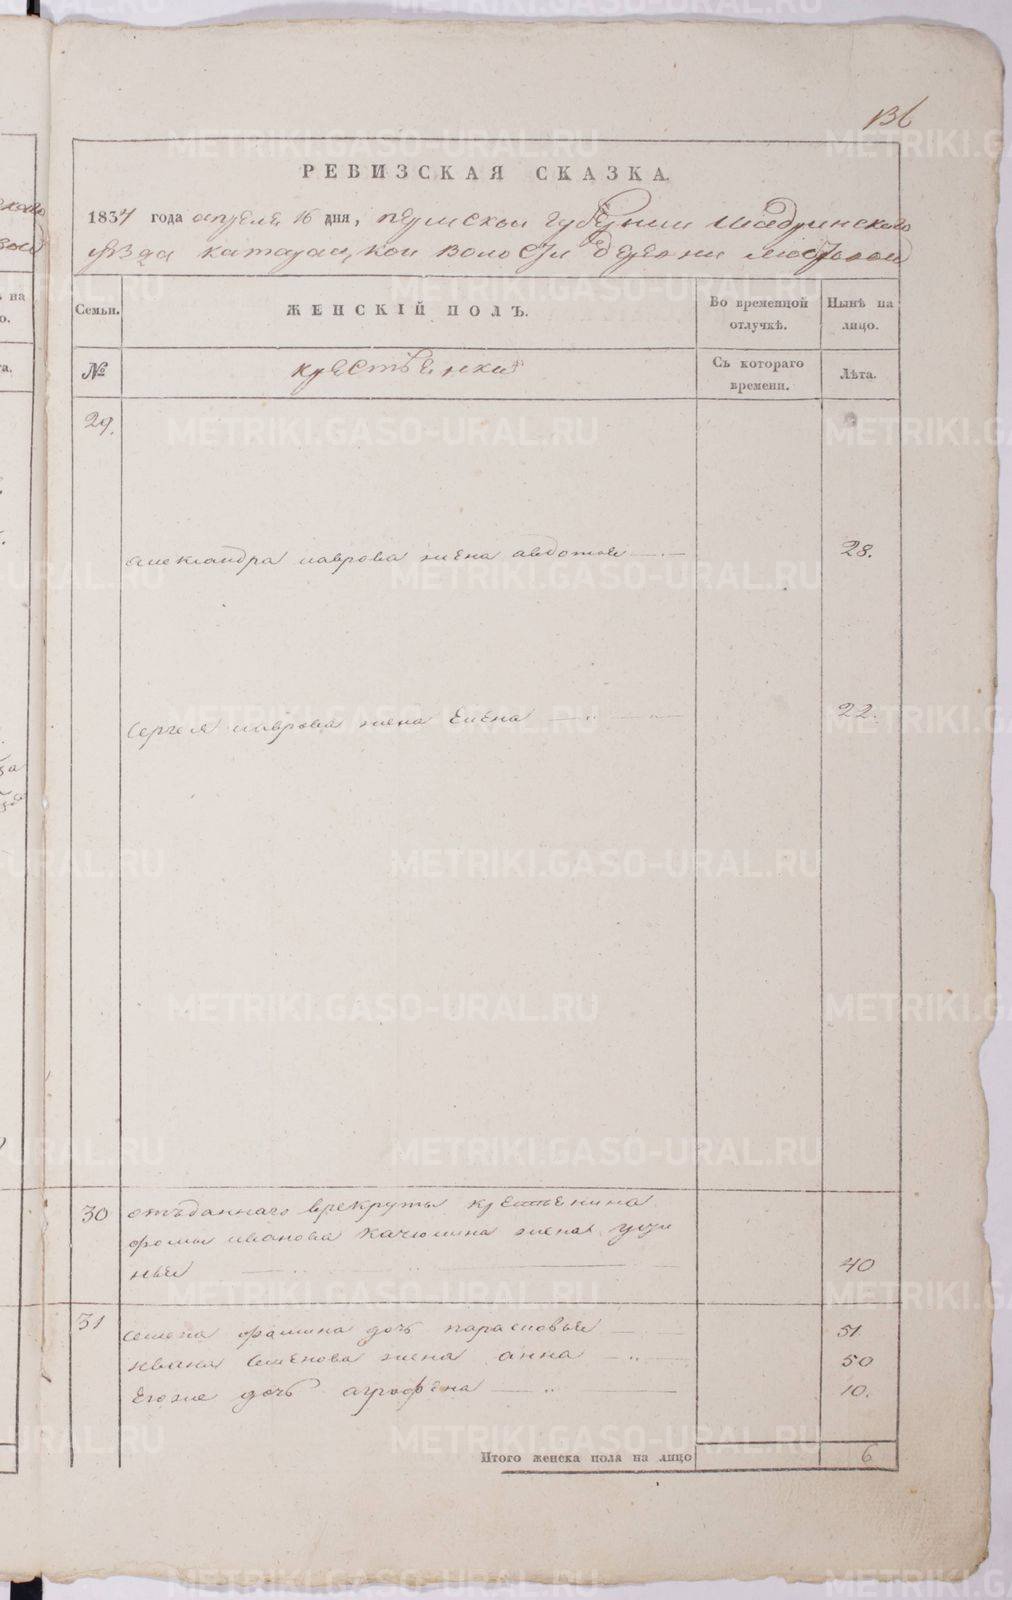 136
РЕВИЗСКАЯ СКАЗКА.
1834 года апреля 16 дня, пермской губернии шадринского
уезда катайской волости деревни
Семьи. ЖЕНСКІЙ ПОЛЪ. Во временной отлучкѣ. Нынѣ на лицо.
№ крестьенки Съ котораго времени. Лѣта.
29.
александра лаврова жена авдотья 28.
сергея лаврова жена елена 22.
30 отъданнаго врекруты крестьенина
фомы иванова качюсина жена
нья 40
31 семена фамина дочь парасковья 51
ивана семенова жена анна 50
егоже дочь агрофена 10.
Итого женска пола на лицо 6
METRIKI.GASO-URAL.RU